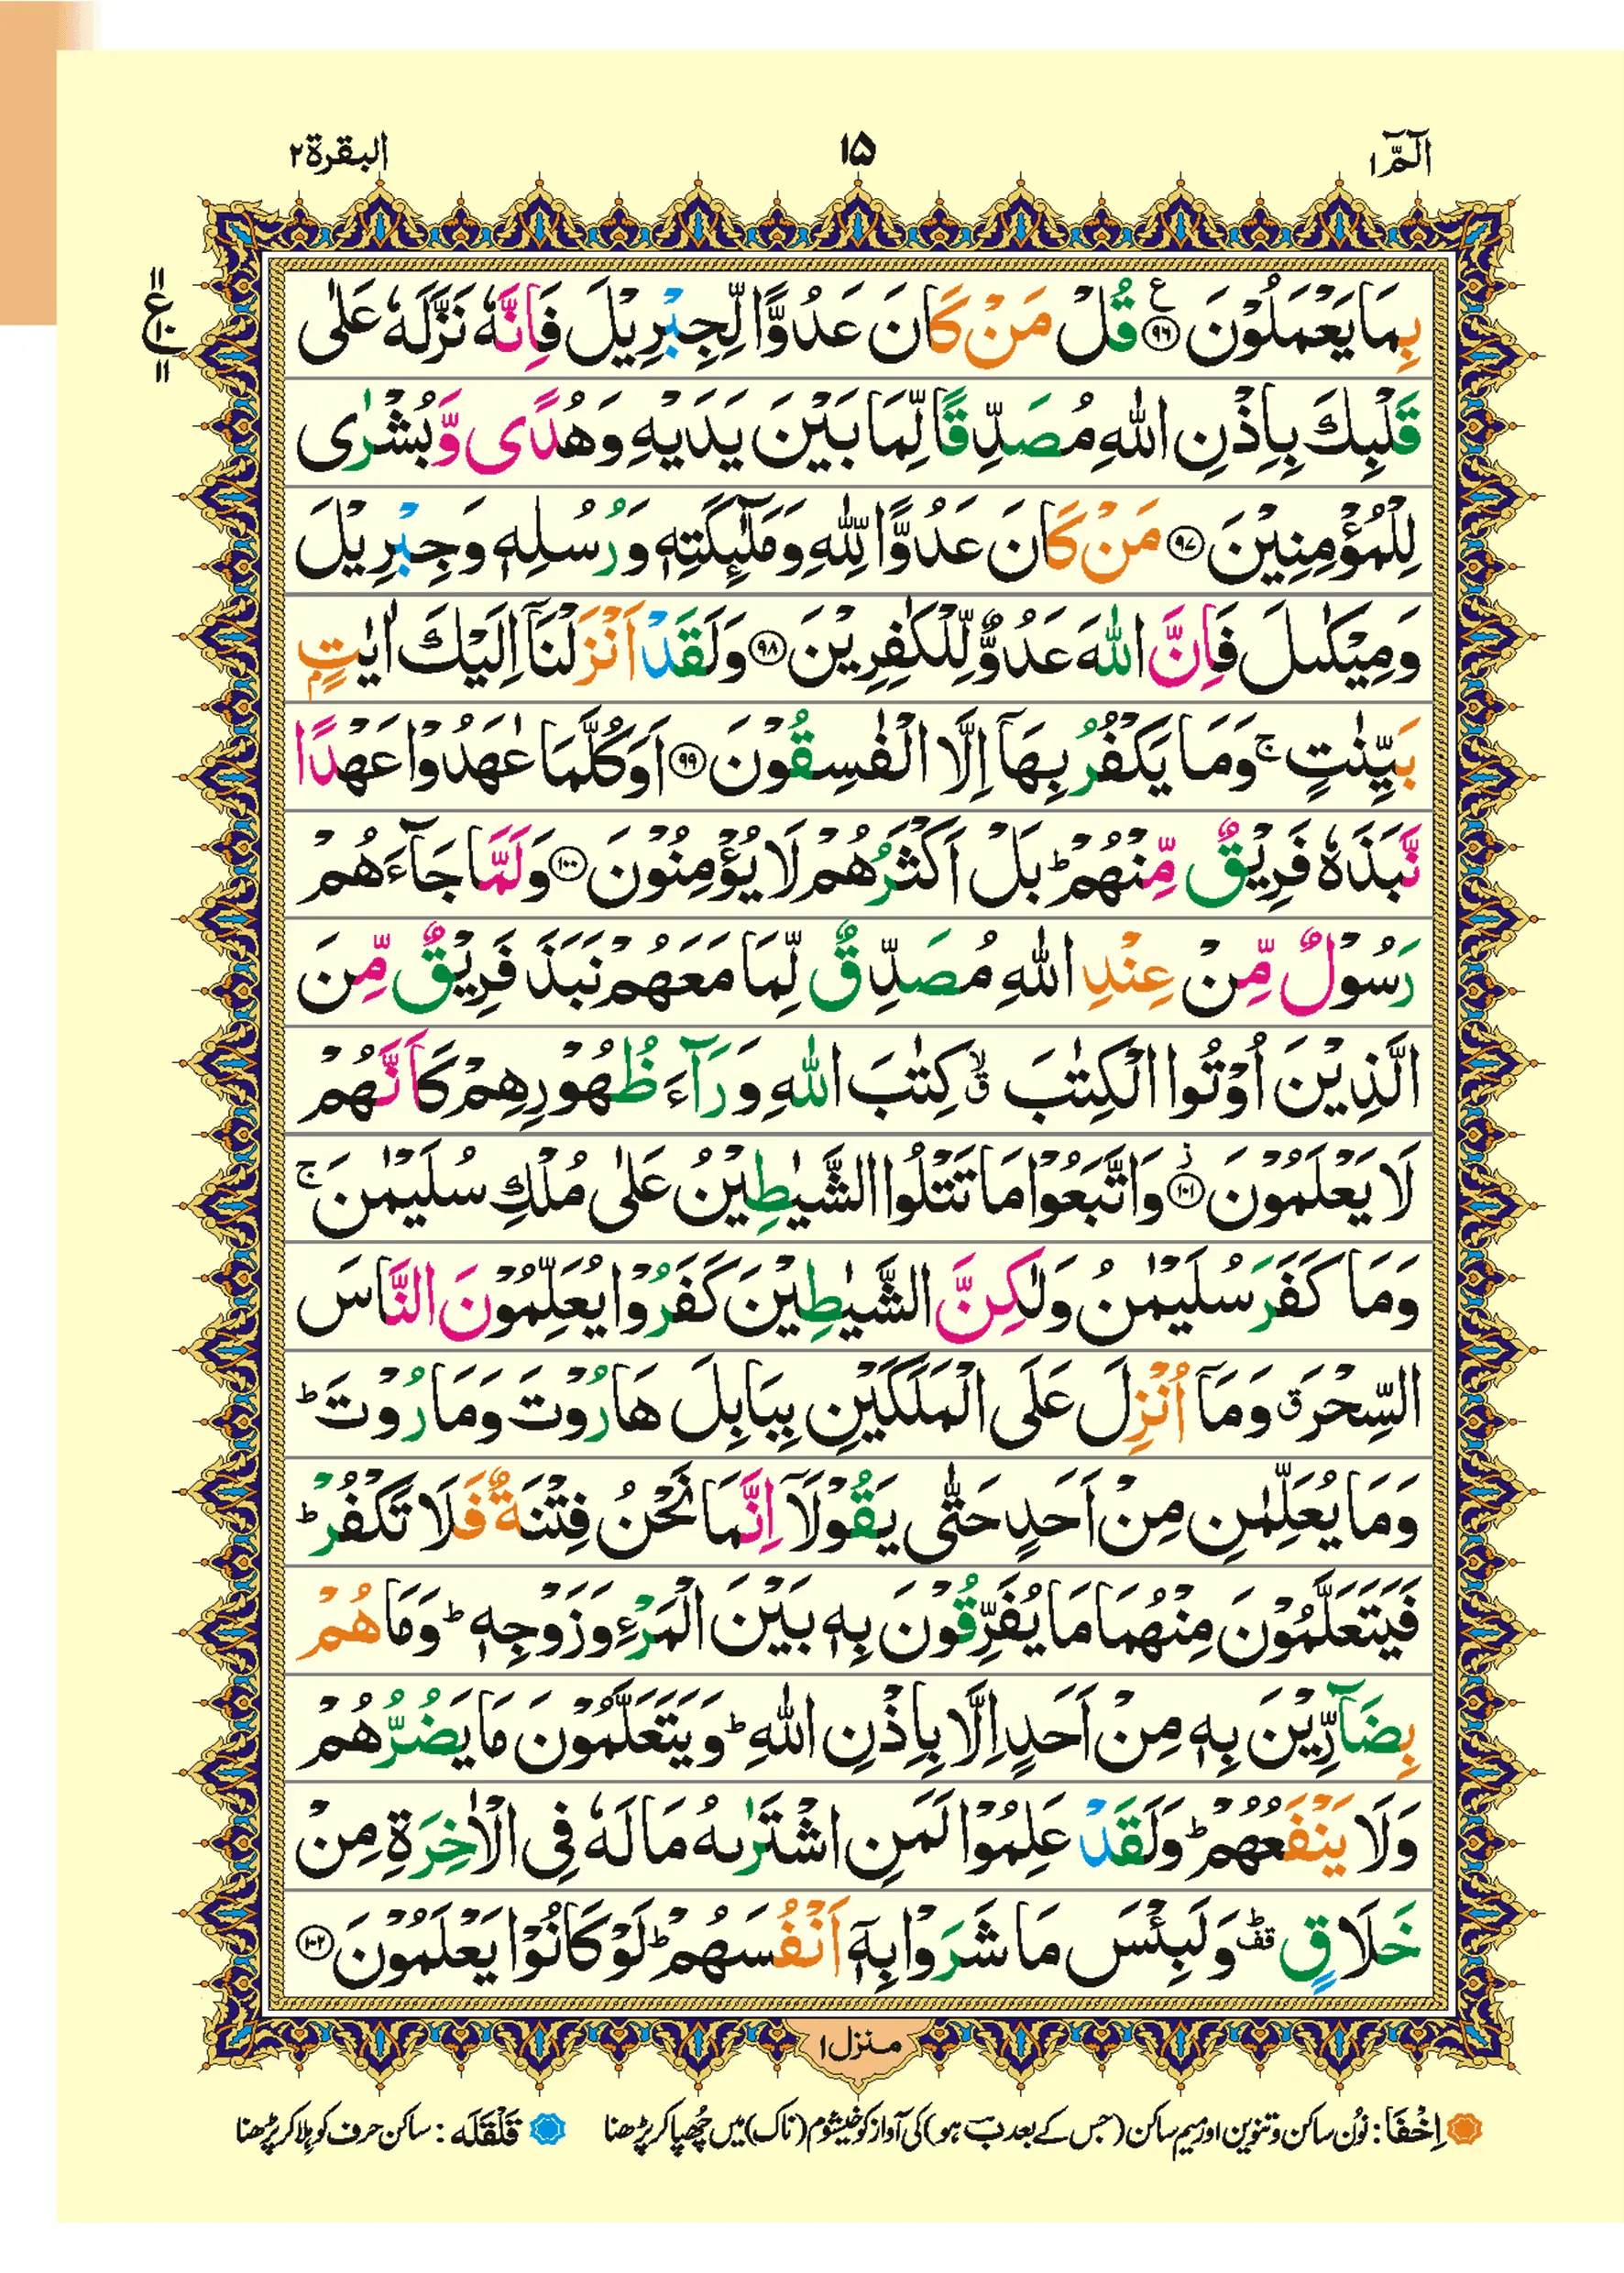 الٓمّٓ ١ ١۵ البقرة ٢
بِمَا يَعْمَلُوْنَ ﴿٩٦﴾ قُلْ مَنْ كَانَ عَدُوًّا لِّجِبْرِيْلَ فَاِنَّهٗ نَزَّلَهٗ عَلٰى
قَلْبِكَ بِاِذْنِ اللّٰهِ مُصَدِّقًا لِّمَا بَيْنَ يَدَيْهِ وَهُدًى وَّبُشْرٰى
لِلْمُؤْمِنِيْنَ ﴿٩٧﴾ مَنْ كَانَ عَدُوًّا لِّلّٰهِ وَمَلٰٓئِكَتِهٖ وَرُسُلِهٖ وَجِبْرِيْلَ
وَمِيْكٰىلَ فَاِنَّ اللّٰهَ عَدُوٌّ لِّلْكٰفِرِيْنَ ﴿٩٨﴾ وَلَقَدْ اَنْزَلْنَآ اِلَيْكَ اٰيٰتٍۭ
بَيِّنٰتٍ ۚ وَمَا يَكْفُرُ بِهَآ اِلَّا الْفٰسِقُوْنَ ﴿٩٩﴾ اَوَكُلَّمَا عٰهَدُوْا عَهْدًا
نَّبَذَهٗ فَرِيْقٌ مِّنْهُمْ ؕ بَلْ اَكْثَرُهُمْ لَا يُؤْمِنُوْنَ ﴿١٠٠﴾ وَلَمَّا جَآءَهُمْ
رَسُوْلٌ مِّنْ عِنْدِ اللّٰهِ مُصَدِّقٌ لِّمَا مَعَهُمْ نَبَذَ فَرِيْقٌ مِّنَ
الَّذِيْنَ اُوْتُوا الْكِتٰبَ ۙق كِتٰبَ اللّٰهِ وَرَآءَ ظُهُوْرِهِمْ كَاَنَّهُمْ
لَا يَعْلَمُوْنَ ﴿١٠١﴾ وَاتَّبَعُوْا مَا تَتْلُوا الشَّيٰطِيْنُ عَلٰى مُلْكِ سُلَيْمٰنَ ۚ
وَمَا كَفَرَ سُلَيْمٰنُ وَلٰكِنَّ الشَّيٰطِيْنَ كَفَرُوْا يُعَلِّمُوْنَ النَّاسَ
السِّحْرَ ق وَمَآ اُنْزِلَ عَلَى الْمَلَكَيْنِ بِبَابِلَ هَارُوْتَ وَمَارُوْتَ ؕ
وَمَا يُعَلِّمٰنِ مِنْ اَحَدٍ حَتّٰى يَقُوْلَآ اِنَّمَا نَحْنُ فِتْنَةٌ فَلَا تَكْفُرْ ؕ
فَيَتَعَلَّمُوْنَ مِنْهُمَا مَا يُفَرِّقُوْنَ بِهٖ بَيْنَ الْمَرْءِ وَزَوْجِهٖ ؕ وَمَا هُمْ
بِضَآرِّيْنَ بِهٖ مِنْ اَحَدٍ اِلَّا بِاِذْنِ اللّٰهِ ؕ وَيَتَعَلَّمُوْنَ مَا يَضُرُّهُمْ
وَلَا يَنْفَعُهُمْ ؕ وَلَقَدْ عَلِمُوْا لَمَنِ اشْتَرٰىهُ مَا لَهٗ فِى الْاٰخِرَةِ مِنْ
خَلَاقٍ ؕقف وَلَبِئْسَ مَا شَرَوْا بِهٖٓ اَنْفُسَهُمْ ؕ لَوْ كَانُوْا يَعْلَمُوْنَ ﴿١٠٢﴾
منزل ١
اِخْفَا : نُون ساکن و تنوین اور میم ساکن (جس کے بعد ب ہو) کی آواز کو خیشوم (ناک) میں چُھپا کر پڑھنا قَلْقَلَه : ساکن حرف کو ہلا کر پڑھنا